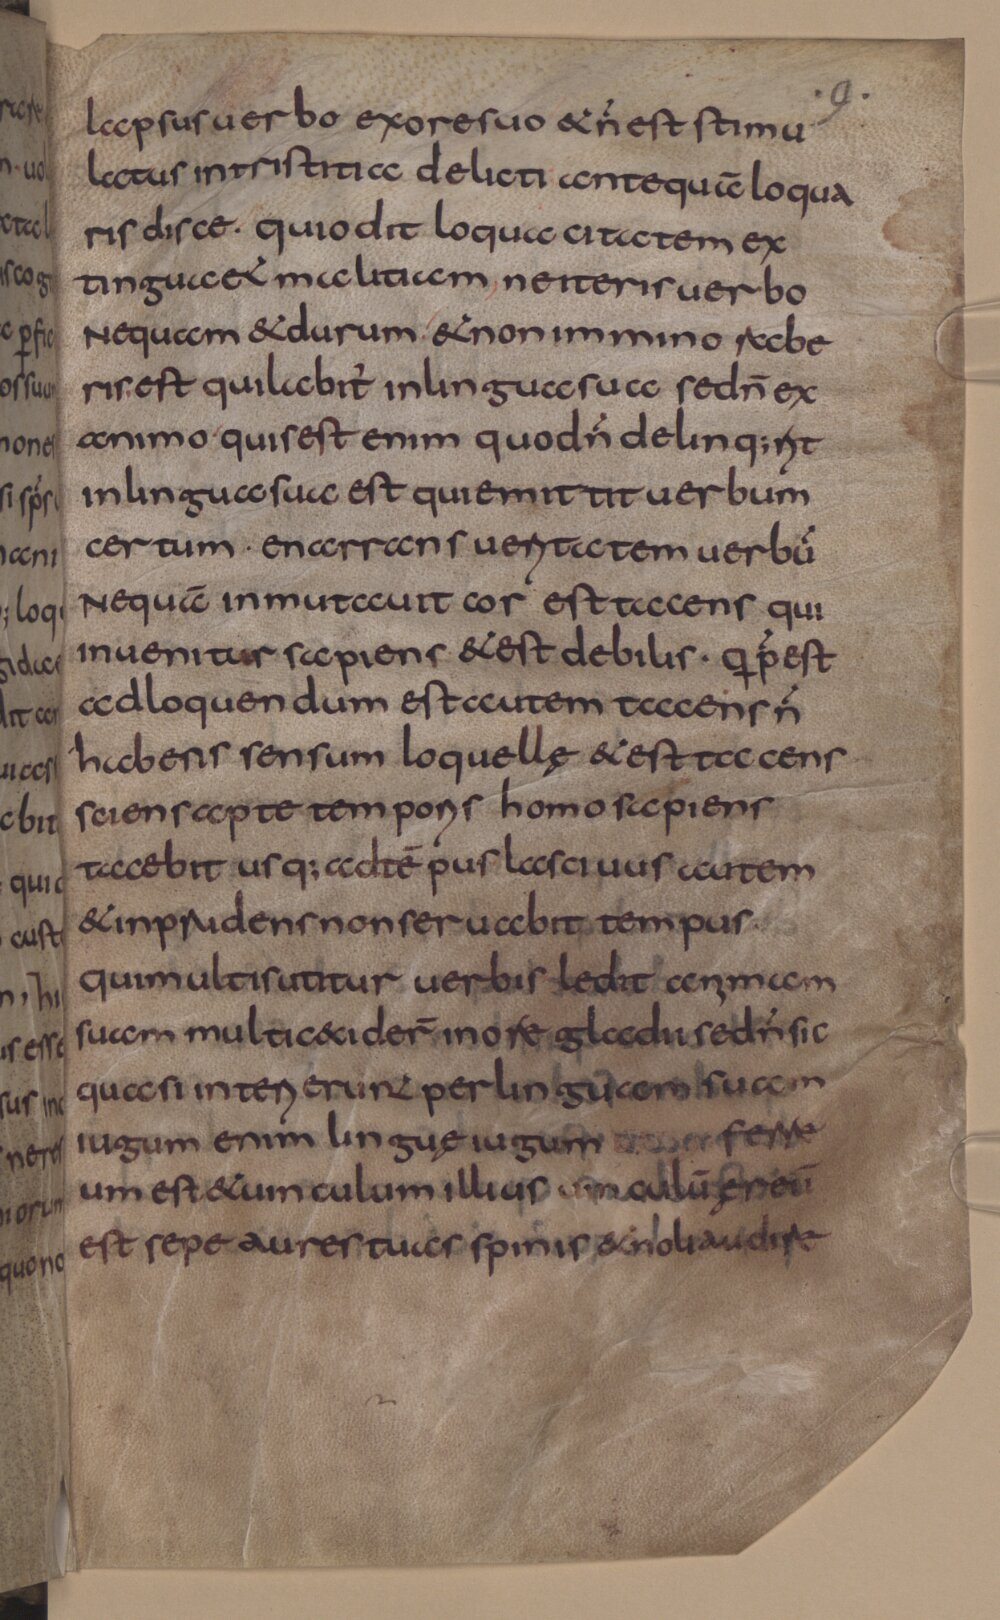 .9.
lapsus uerbo ex ore suo & n̄ est stimu
latus in tristitia delicti antequā loqua
ris disce. qui odit loquacitatem ex
tinguae& malitiam ne iteris uerbo
Nequam & durum & non immino rabe
ris. est qui labit̄ in lingua sua sed n̄ ex
animo quis est enim quod n̄ delinq;rit
in lingua sua est qui emittit uerbum
certum. enarrans ueritatem uerbū
Nequā inmutauit cor est tacens qui
inuenitur sapiens & est debilis. q p̄est
ad loquendum est autem tacens n̄
habesis sensum loquellę & est tacens
sciens apte temporis homo sapiens
tacebit usq; ad tēpus lasciuus autem
& inprudens non seruabit tempus.
qui multis utitur uerbis ledit animam
suam multi cecider̄ in ore gladii sed n̄ sic
quasi interierunt per linguam suam
iugum enim linguę iugum ferre
um est & uinculum illius uinculū ęreū
est sepe aures tuas spinis & noli audire